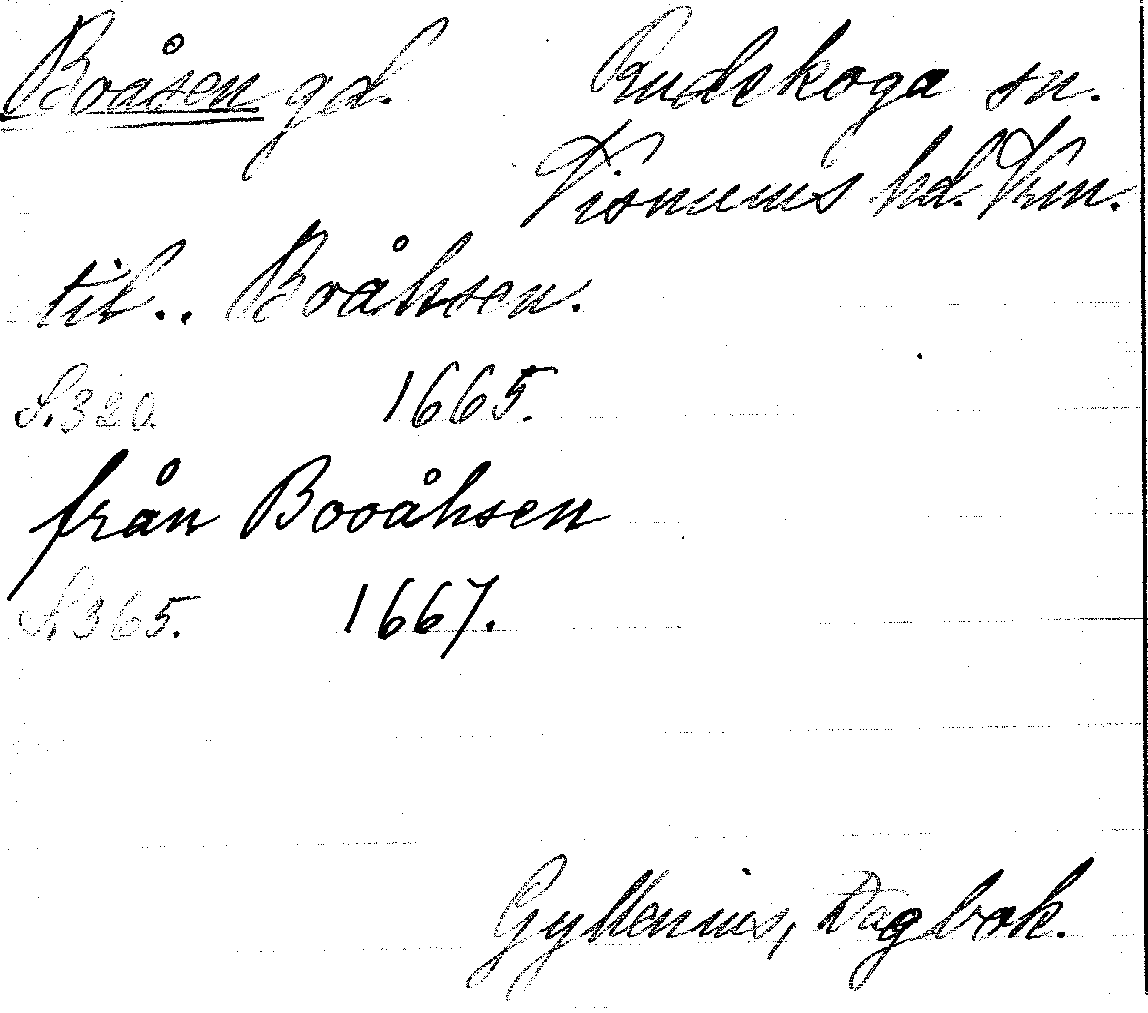 Boåsen gd. Rudskoga sn.
Visnums hd. Vrm.
til.. Boåhsen.
S.320. 1665.
från Booåhsen
S.365. 1667.
Gyllenius, Dagbok.